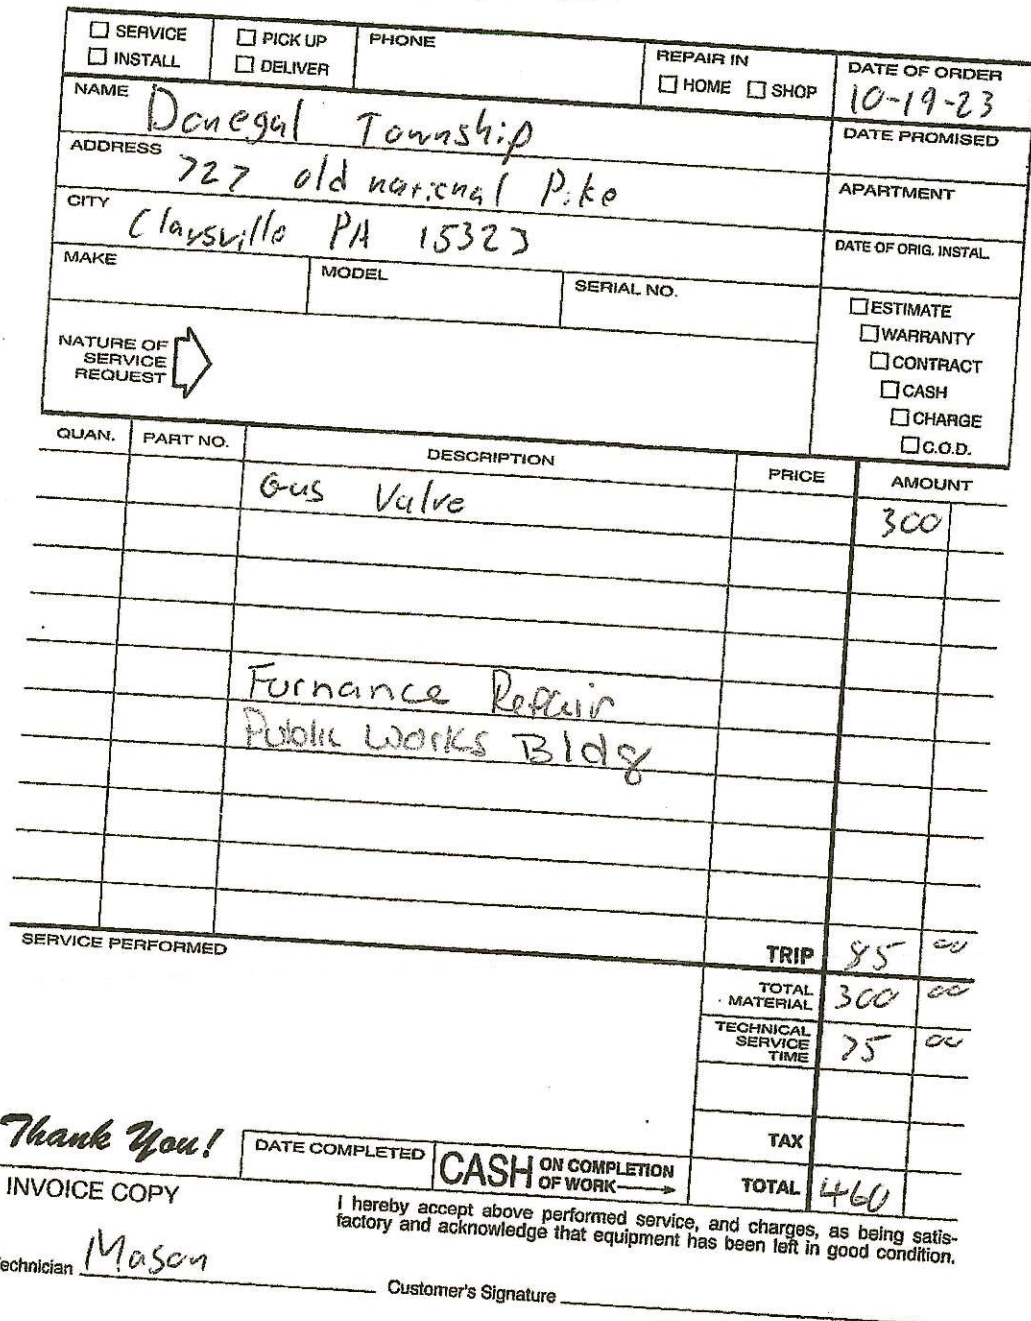 ☐ SERVICE ☐ PICK UP PHONE REPAIR IN DATE OF ORDER
☐ INSTALL ☐ DELIVER ☐ HOME ☐ SHOP 10-19-23
NAME Donegal Township DATE PROMISED
ADDRESS 727 old national Pike APARTMENT
CITY Claysville PA 15323 DATE OF ORIG. INSTAL.
MAKE MODEL SERIAL NO.
☐ ESTIMATE
☐ WARRANTY
☐ CONTRACT
☐ CASH
☐ CHARGE
☐ C.O.D.
NATURE OF
SERVICE
REQUEST
QUAN. PART NO. DESCRIPTION PRICE AMOUNT
Gas Valve 300
Furnance Repair
Public Works Bldg
SERVICE PERFORMED TRIP 85 00
TOTAL
MATERIAL 300 00
TECHNICAL
SERVICE
TIME 75 00
TAX
Thank You! DATE COMPLETED CASH ON COMPLETION
OF WORK TOTAL 460
INVOICE COPY
I hereby accept above performed service, and charges, as being satis-
factory and acknowledge that equipment has been left in good condition.
Technician Mason Customer's Signature